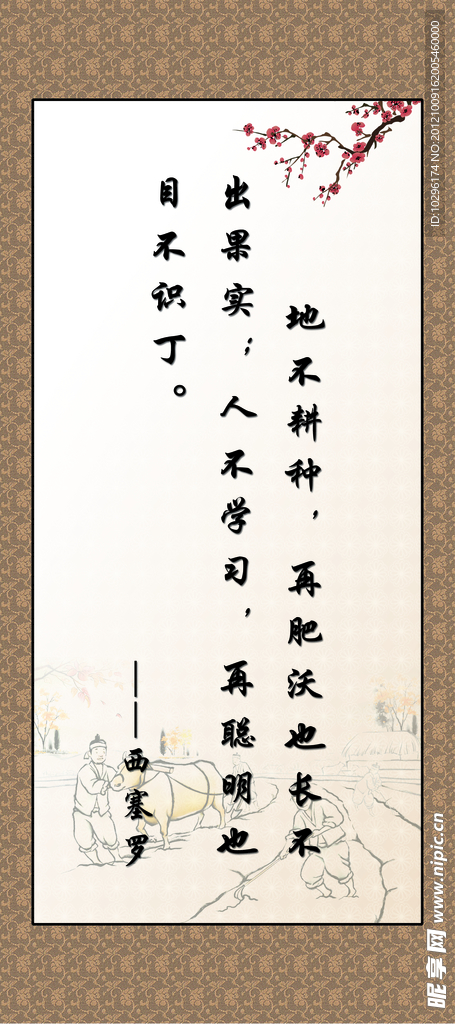 地不耕种，再肥沃也长不
出果实；人不学习，再聪明也
目不识丁。
——西塞罗
ID:10296174 NO:20121009162005460000
昵享网 www.nipic.cn